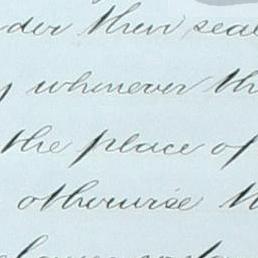 der their seal
whenever th
the place of
otherwise th